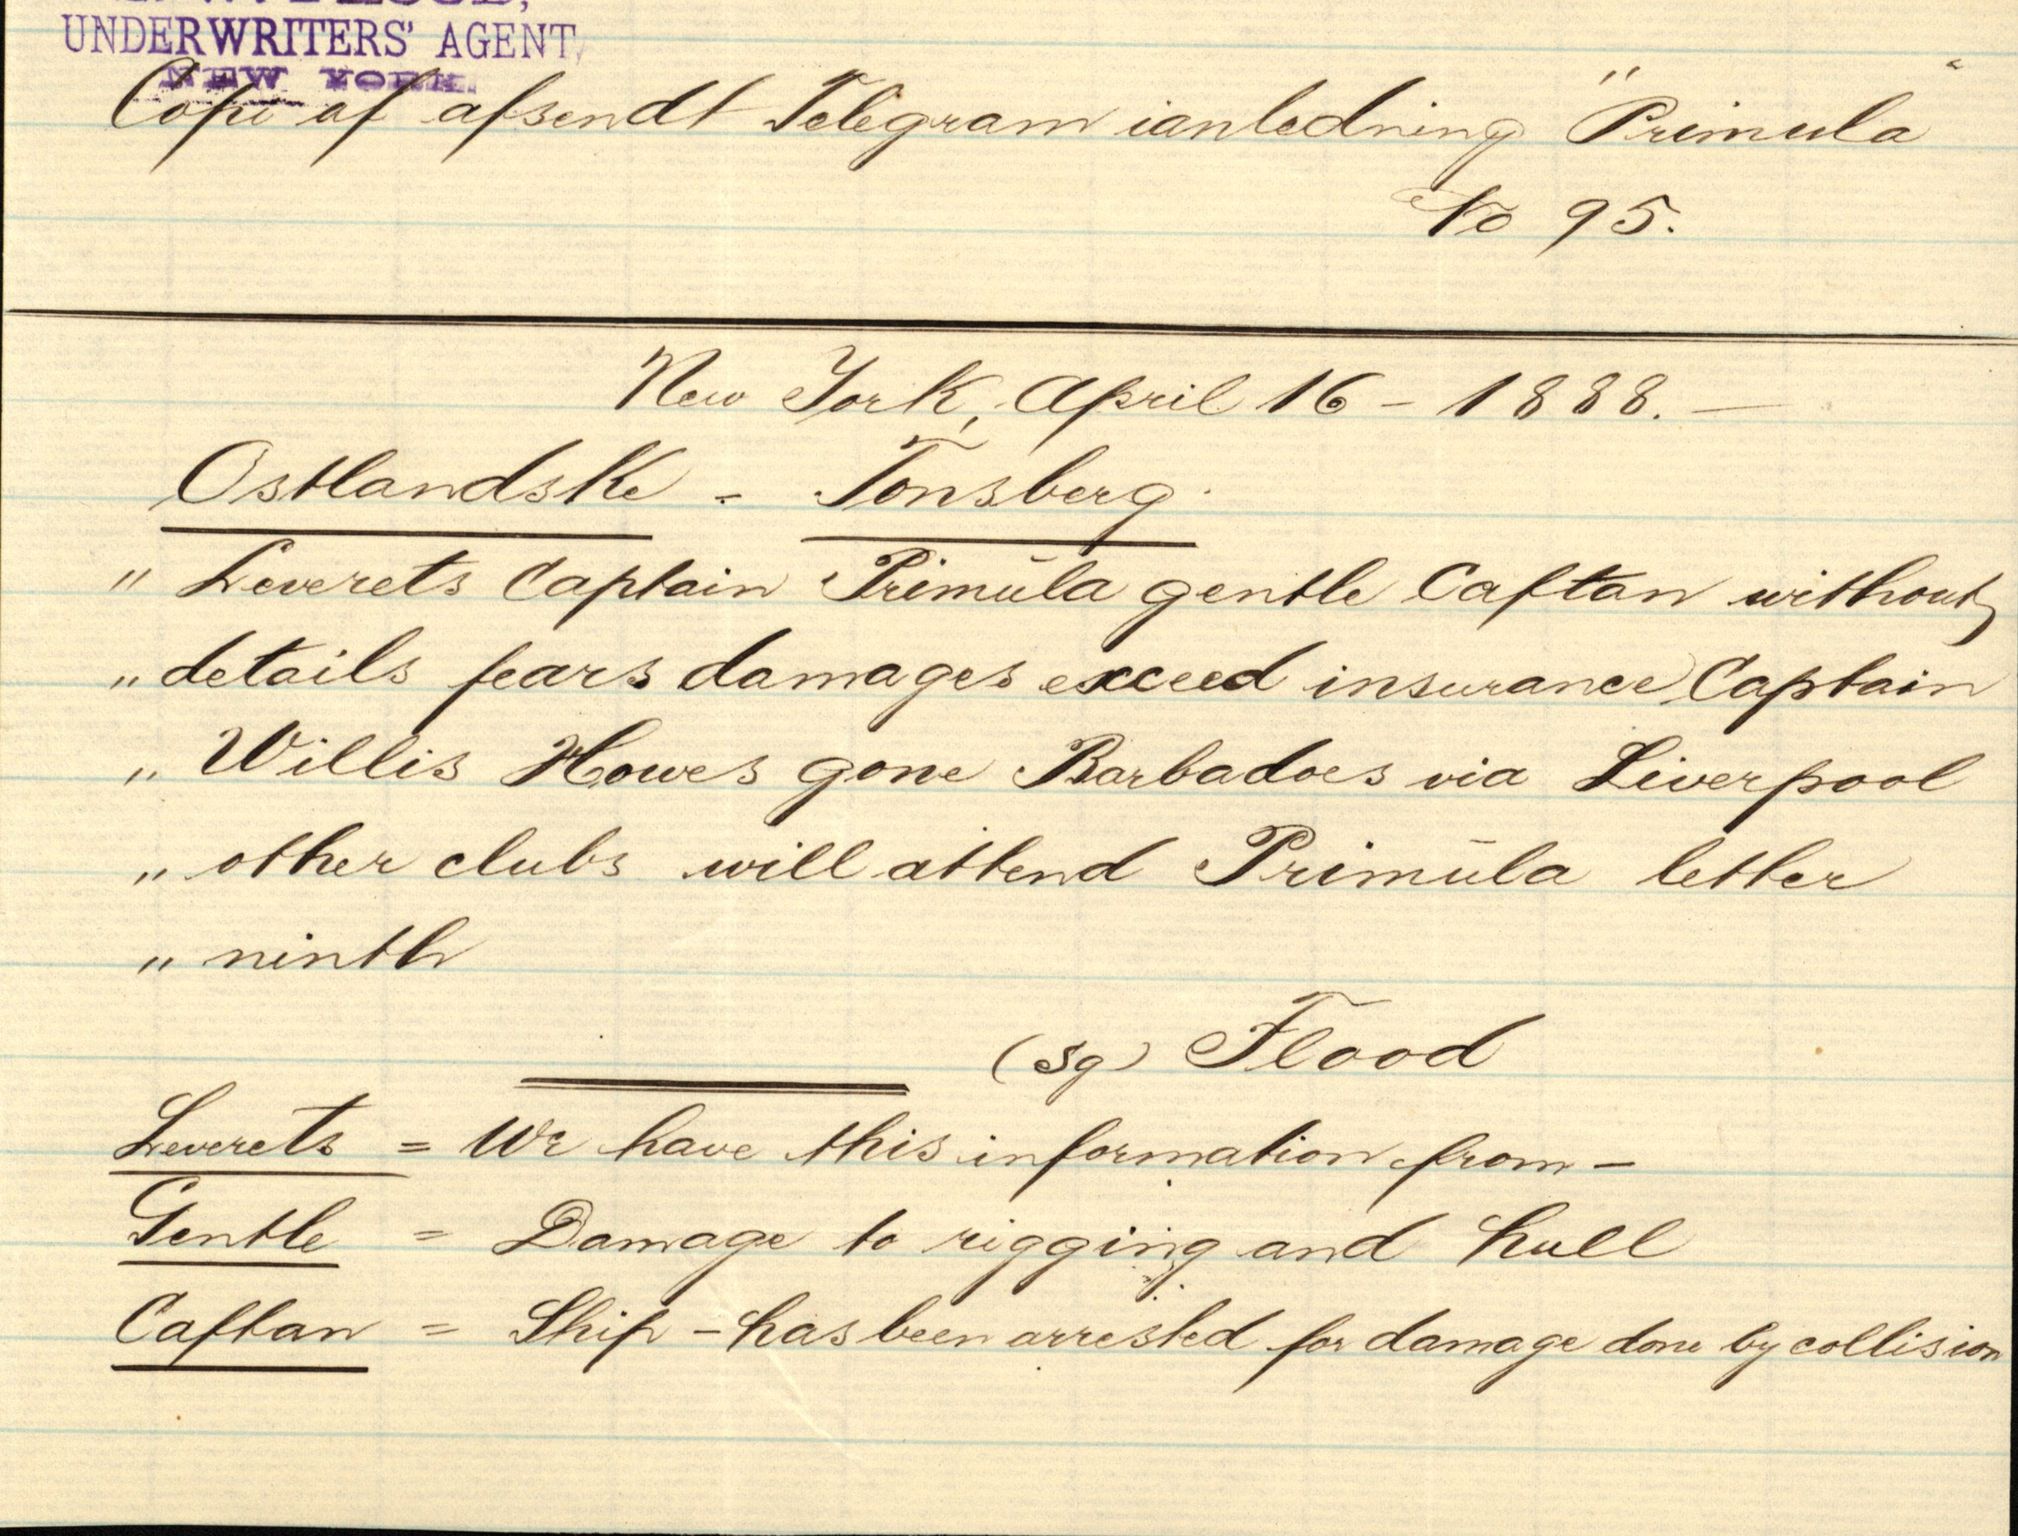 UNDERWRITERS' AGENT,
NEW YORK.
Copi af afsendt Telegram ianledning "Primula"
No 95.
New York, April 16 - 1888. -
Ostlandske - Tonsberg.
" Leverets Captain Primŭla gentle Caftan without
" details fears damages exceed insurance Captain
" Willis Howes gone Barbadoes via Liverpool
" other clubs will attend Primŭla letter
" ninth
(sg) Flood
Leverets = We have this information from -
Gentle = Damage to rigging and hull
Caftan = Ship - has been arrested for damage done by collision